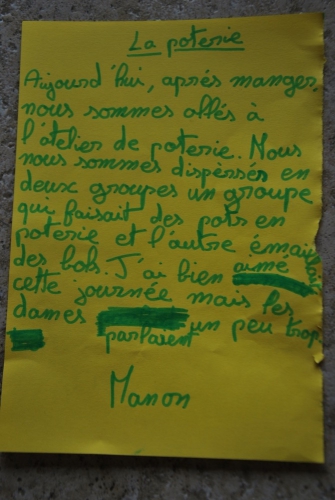 La poterie
Aujourd'hui, après manger,
nous sommes allés à
l'atelier de poterie. Nous
nous sommes dispersés en
deux groupes un groupe
qui faisait des pots en
poterie et l'autre émaillait
des bols. J'ai bien aimé
cette journée mais les
dames un peu trop
parlaient
Manon